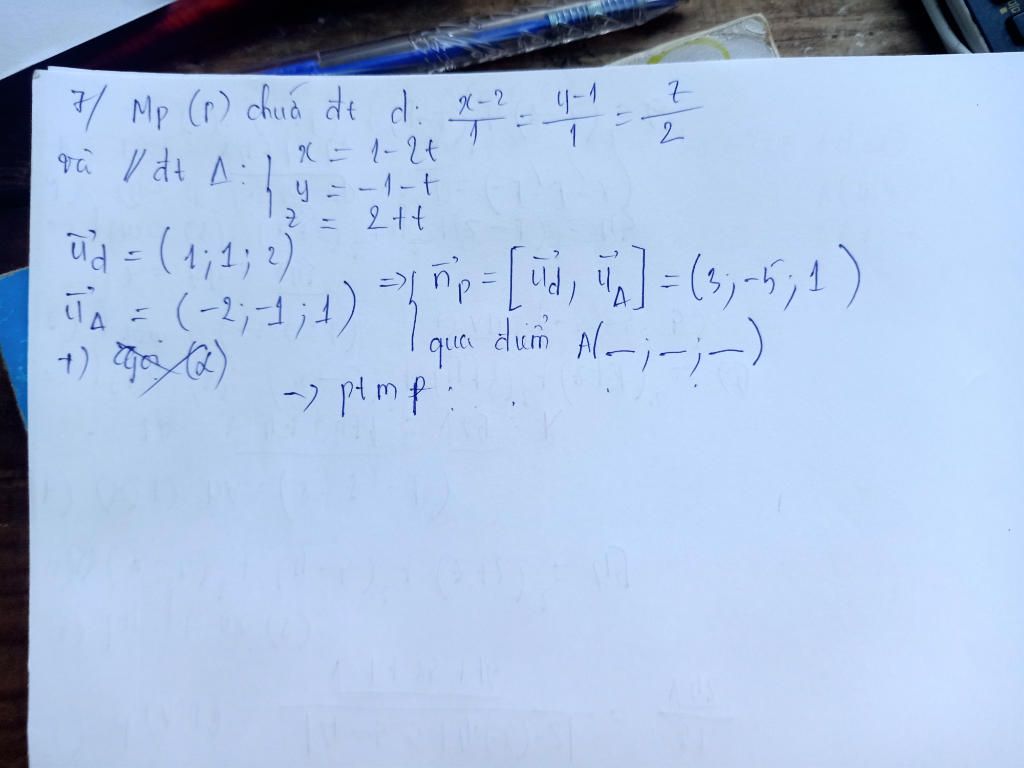 7/ Mp (P) chứa đt d: x-2/1 = y-1/1 = z/2
và // đt Δ: { x = 1-2t
y = -1-t
z = 2+t
u⃗d = (1;1;2)
u⃗Δ = (-2;-1;1) => { n⃗p = [u⃗d, u⃗Δ] = (3;-5;1)
qua điểm A(_;_;_)
+) (α)
-> ptmp: . . .